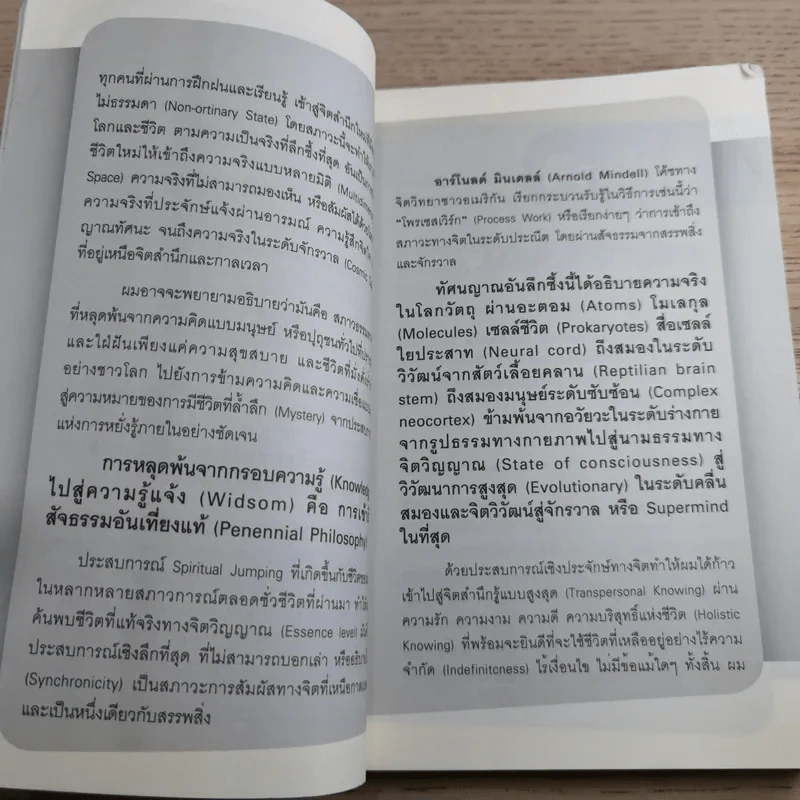 ทุกคนที่ผ่านการฝึกฝนและเรียนรู้ เข้าสู่จิตสำนึกใหม่
ไม่ธรรมดา (Non-ortinary State) โดยสภาวะนี้จะทำให้
โลกและชีวิต ตามความเป็นจริงที่ลึกซึ้งที่สุด อันเป็น
ชีวิตใหม่ให้เข้าถึงความจริงแบบหลายมิติ
Space) ความจริงที่ไม่สามารถมองเห็น หรือสัมผัสได้ด้วย
ความจริงที่ประจักษ์แจ้งผ่านอารมณ์ ความรู้สึก
ญาณทัศนะ จนถึงความจริงในระดับจักรวาล (Cosmic
ที่อยู่เหนือจิตสำนึกและกาลเวลา
ผมอาจจะพยายามอธิบายว่ามันคือ สภาวธรรม
ที่หลุดพ้นจากความคิดแบบมนุษย์ หรือปุถุชนทั่วไปที่
และใฝ่ฝันเพียงแค่ความสุขสบาย และชีวิตที่มั่งคั่ง
อย่างชาวโลก ไปยังการข้ามความคิดและความเชื่อ
สู่ความหมายของการมีชีวิตที่ล้ำลึก (Mystery) จาก
แห่งการหยั่งรู้ภายในอย่างชัดเจน
การหลุดพ้นจากกรอบความรู้ (Knowledg
ไปสู่ความรู้แจ้ง (Widsom) คือ การเข้า
สัจธรรมอันเที่ยงแท้ (Penennial Philosophy)
ประสบการณ์ Spiritual Jumping ที่เกิดขึ้นกับชีวิต
ในหลากหลายสภาวการณ์ตลอดชั่วชีวิตที่ผ่านมา ทำให้
ค้นพบชีวิตที่แท้จริงทางจิตวิญญาณ (Essence level)
ประสบการณ์เชิงลึกที่สุด ที่ไม่สามารถบอกเล่า หรือ
(Synchronicity) เป็นสภาวะการสัมผัสทางจิตที่เหนือ
และเป็นหนึ่งเดียวกับสรรพสิ่ง
อาร์โนลด์ มินเดลล์ (Arnold Mindell) โค้ชทาง
จิตวิทยาชาวอเมริกัน เรียกกระบวนรับรู้ในวิธีการเช่นนี้ว่า
"โพรเซสเวิร์ก" (Process Work) หรือเรียกง่ายๆ ว่าการเข้าถึง
สภาวะทางจิตในระดับประณีต โดยผ่านสัจธรรมจากสรรพสิ่ง
และจักรวาล
ทัศนญาณอันลึกซึ้งนี้ได้อธิบายความจริง
ในโลกวัตถุ ผ่านอะตอม (Atoms) โมเลกุล
(Molecules) เซลล์ชีวิต (Prokaryotes) สื่อเซลล์
ใยประสาท (Neural cord) ถึงสมองในระดับ
วิวัฒน์จากสัตว์เลื้อยคลาน (Reptilian brain
stem) ถึงสมองมนุษย์ระดับซับซ้อน (Complex
neocortex) ข้ามพ้นจากอวัยวะในระดับร่างกาย
จากรูปธรรมทางกายภาพไปสู่นามธรรมทาง
จิตวิญญาณ (State of consciousness) สู่
วิวัฒนาการสูงสุด (Evolutionary) ในระดับคลื่น
สมองและจิตวิวัฒน์สู่จักรวาล หรือ Supermind
ในที่สุด
ด้วยประสบการณ์เชิงประจักษ์ทางจิตทำให้ผมได้ก้าว
เข้าไปสู่จิตสำนึกรู้แบบสูงสุด (Transpersonal Knowing) ผ่าน
ความรัก ความงาม ความดี ความบริสุทธิ์แห่งชีวิต (Holistic
Knowing) ที่พร้อมจะยินดีที่จะใช้ชีวิตที่เหลืออยู่อย่างไร้ความ
จำกัด (Indefinitcness) ไร้เงื่อนไข ไม่มีข้อแม้ใดๆ ทั้งสิ้น ผม